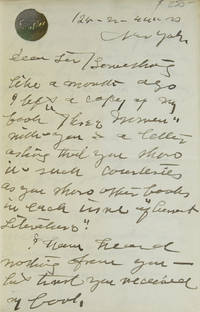 New York
Dear Sir / Something
like a month ago
I left a copy of my
book "Three Women"
with you & a letter
asking that you show
it such courtesies
as you show other books
in each issue of "Current
Literature."
I have heard
nothing from you —
but trust you received
my book.